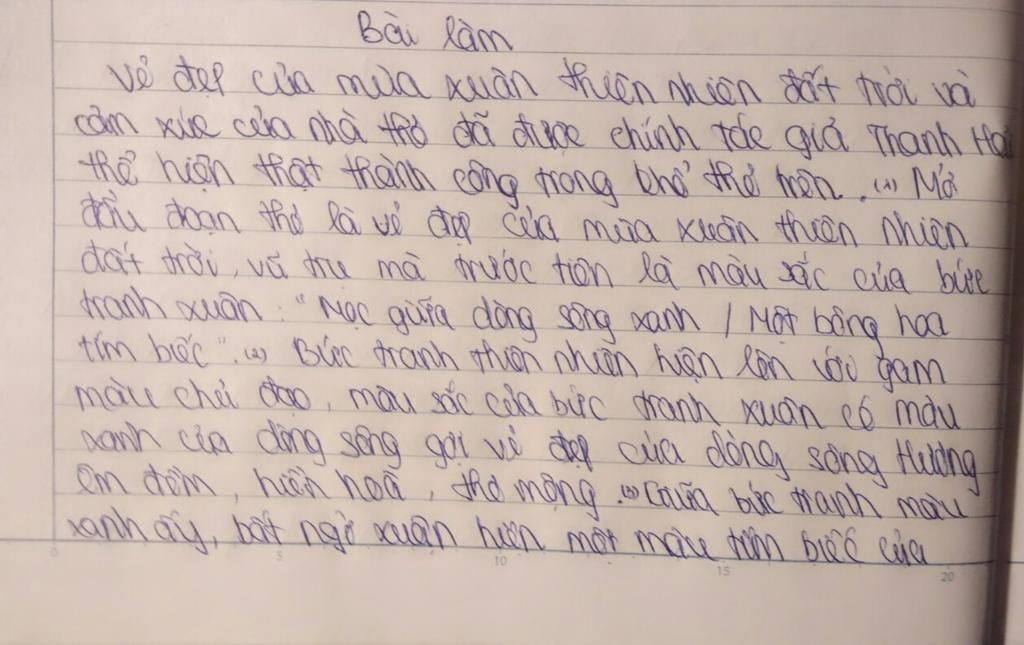 Bài làm
Vẻ đẹp của mùa xuân thiên nhiên đất trời và
cảm xúc của nhà thơ đã được chính tác giả Thanh Hải
thể hiện thật thành công trong khổ thơ trên. (1) Mở
đầu đoạn thơ là vẻ đẹp của mùa xuân thiên nhiên
đất trời, vũ trụ mà trước tiên là màu sắc của bức
tranh xuân: "Mọc giữa dòng sông xanh / Một bông hoa
tím biếc". (2) Bức tranh thiên nhiên hiện lên với gam
màu chủ đạo, màu sắc của bức tranh xuân có màu
xanh của dòng sông gợi vẻ đẹp của dòng sông Hương
êm đềm, hiền hoà, thơ mộng. (3) Giữa bức tranh màu
xanh ấy, bất ngờ xuân hiện một màu tím biếc của
0 5 10 15 20